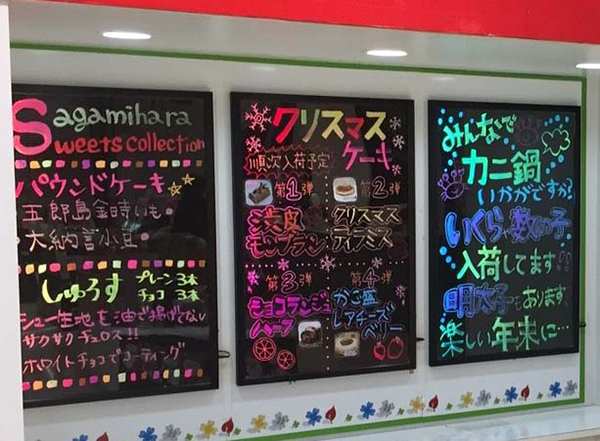 Sagamihara
Sweets Collection
パウンドケーキ
五郎島金時いも
大納言小豆
しゅろす プレーン 3本
チョコ 3本
シュー生地を油で揚げてない
サクサクチュロス!!
ホワイトチョコでコーティング
クリスマス
ケーキ
順次入荷予定
第1弾
渋皮
モンブラン
第2弾
クリスマス
ティラミス
第3弾
ショコランジュ
ハーフ
第4弾
かご盛
レアチーズ
ベリー
みんなで
カニ鍋
いかがですか!
いくら、数の子
入荷してます!!
明太子もあります。
楽しい年末に…